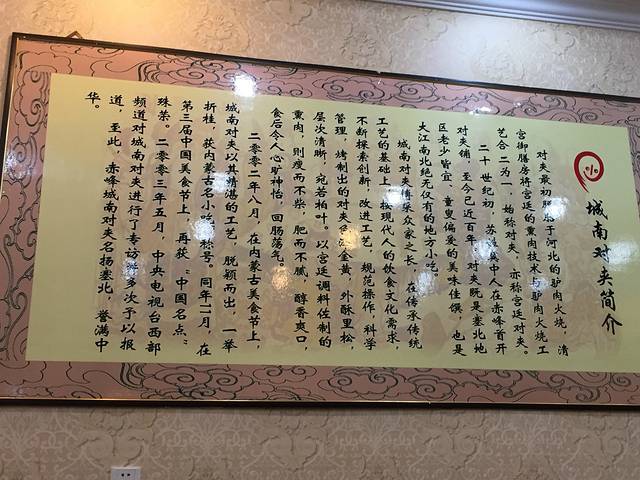 城南对夹简介
对夹最初于河北的驴肉火烧，清
宫御膳房将宫廷的熏肉技术与驴肉火烧工
艺合二为一，始称对夹，亦称宫廷对夹。
二十世纪初，苏家中人在赤峰首开
对夹铺，至今已近百年。对夹既是塞北地
区老少皆宜、童叟偏爱的美味佳馔，也是
大江南北绝无仅有的地方小吃。
城南对夹博采众家之长，在传承传统
工艺的基础上，按现代人的饮食文化需求，
不断探索创新，改进工艺，规范操作，科学
管理，烤制出的对夹色泽金黄，外酥里松，
层次清晰，宛若柏叶。以宫廷调料佐制的
熏肉，则瘦而不柴，肥而不腻，醇香爽口，
食后令人心旷神怡，回肠荡气。
二零零二年八月，在内蒙古美食节上，
城南对夹以其精湛的工艺，脱颖而出，一举
折桂，获内蒙古名小吃称号。同年十一月，在
第三届中国美食节上，再获“中国名点”
珠荣。二零零三年五月，中央电视台西部
频道对城南对夹进行了专访并多次予以报
道，至此，赤峰城南对夹名扬塞北，誉满中
华。